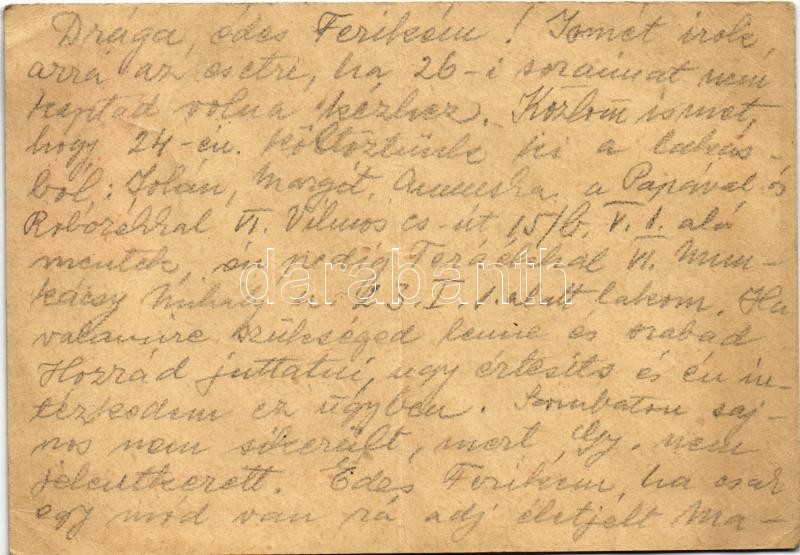 Drága, édes Ferikém! Ismét irok,
arra az esetre, ha 26-i soraimat nem
kaptad volna kézhez. Közlöm ismét,
hogy 24-én költöztünk ki a lakás-
ból: Jolán, Margit, Annuska a Papával és
Robozékkal VI. Vilmos cs-út 15/b. V. 1. alá
mentek, én pedig Terácékkal VI. Mun-
kácsy Mihály u. 23. I. 1. alatt lakom. Ha
valamire szükséged lenne és szabad
Hozzád juttatni, ugy értesits és én in-
tézkedem ez ügyben. Szombaton saj-
nos nem sikerült, mert Gy. nem
jelentkezett. Édes Ferikém, ha csak
egy mód van rá adj életjelt Ma-
darabanth.com